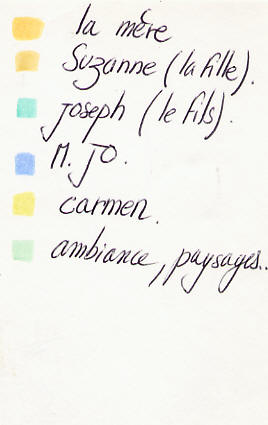 la mère
Suzanne (la fille).
Joseph (le fils).
M. JO.
Carmen.
ambiance, paysages..